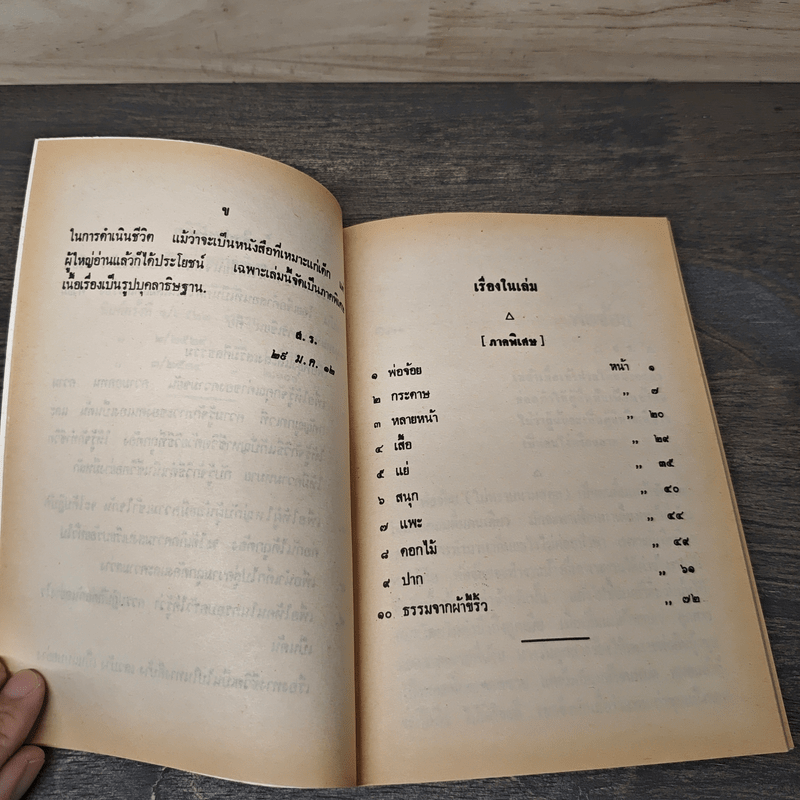 ข
ในการดำเนินชีวิต แม้ว่าจะเป็นหนังสือที่เหมาะแก่เด็ก
ผู้ใหญ่อ่านแล้วก็ได้ประโยชน์ เฉพาะเล่มนี้จัดเป็นภาคพิเศษ
เนื้อเรื่องเป็นรูปบุคลาธิษฐาน.
ส. ร.
๒๕ ม.ค. ๑๒
เรื่องในเล่ม
[ ภาคพิเศษ ]
๑ พ่อจ๋อย หน้า ๑
๒ กระดาษ ,, ๗
๓ หลายหน้า ,, ๒๐
๔ เสื้อ ,, ๒๙
๕ แย่ ,, ๓๕
๖ สนุก ,, ๔๐
๗ แพะ ,, ๔๔
๘ ดอกไม้ ,, ๔๙
๙ ปาก ,, ๖๑
๑๐ ธรรมจากผ้าขี้ริ้ว ,, ๗๒